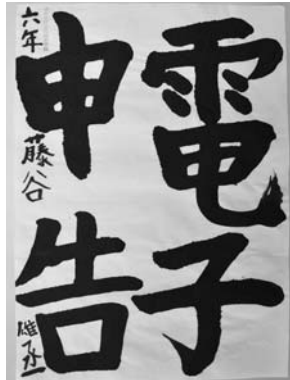 電子
申告
六年 藤谷